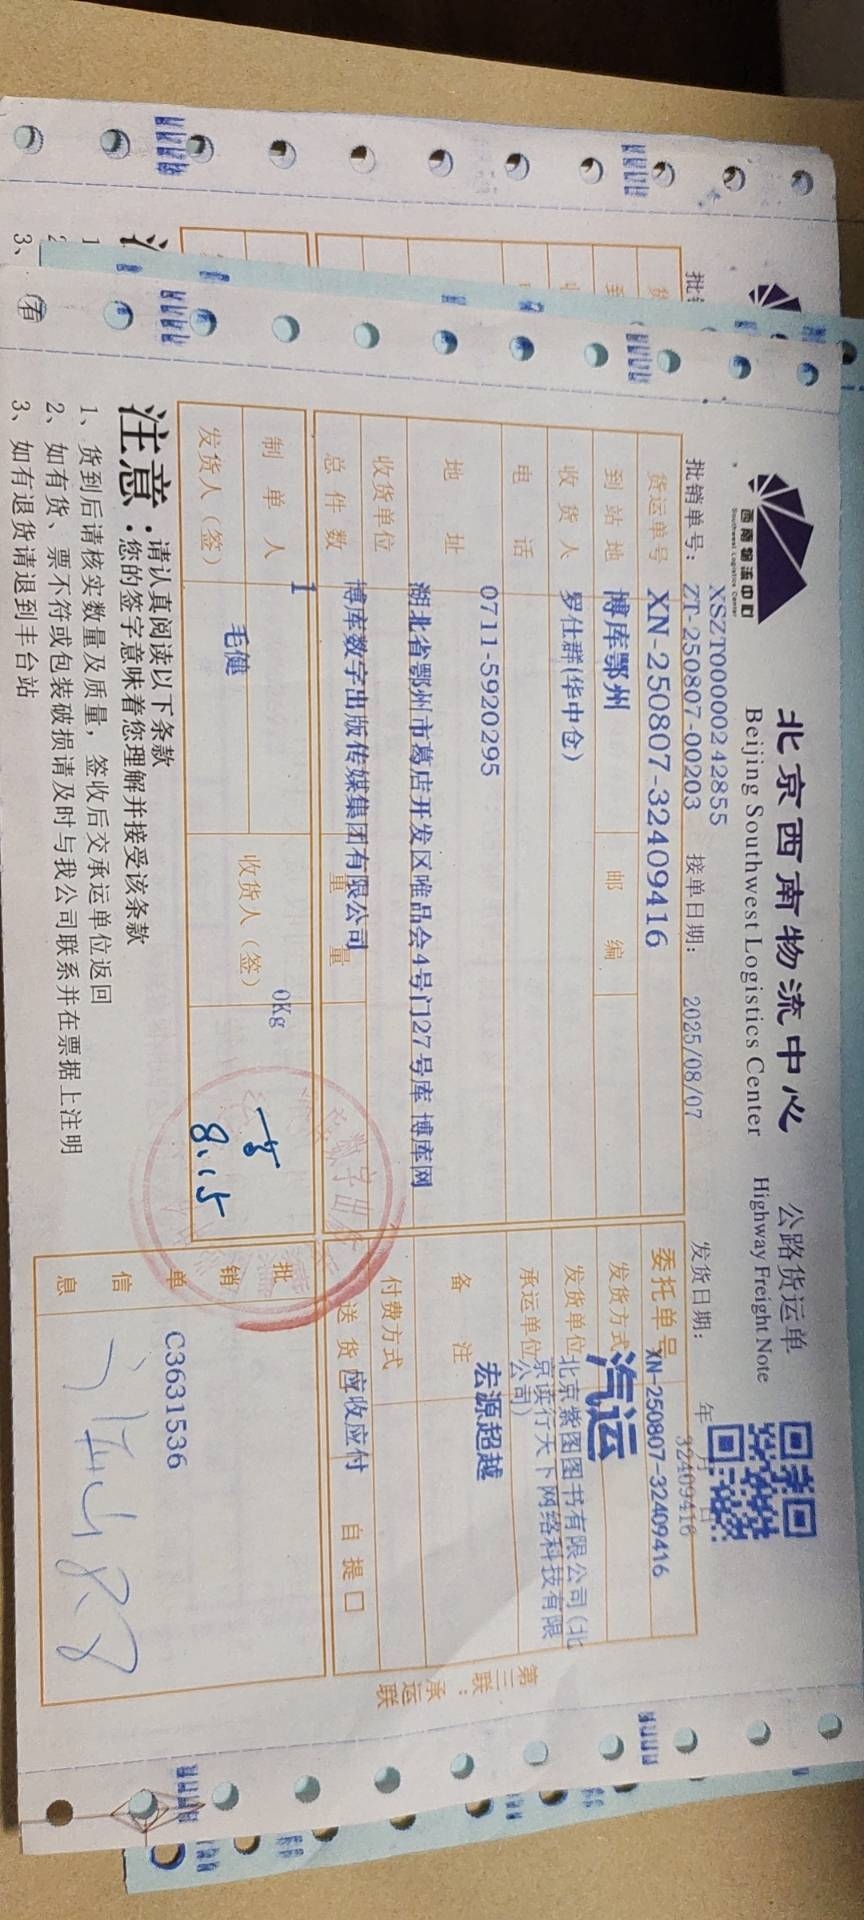 西南物流中心
Southwest Logistics Center
北京西南物流中心 公路货运单
Beijing Southwest Logistics Center Highway Freight Note
XSZT00000242855
批销单号: ZT-250807-00203 接单日期: 2025/08/07 发货日期: 年 月 日
32409416
货运单号 XN-250807-32409416 委托单号 XN-250807-32409416
到站地 博库鄂州 邮编 发货方式 汽运
收货人 罗仕群(华中仓) 发货单位 北京紫图图书有限公司(北
京读行天下网络科技有限
公司)
电话 0711-5920295 承运单位
宏源超越
地址 湖北省鄂州市葛店开发区唯品会4号门27号库 博库网 备注
收货单位 博库数字出版传媒集团有限公司 付费方式 应收应付
总件数 1 重量 0Kg 送货 自提口
制单人 毛健 收货人(签)
发货人(签) 8.15
批销单信息 C3631536
第三联:承运联
注意: 请认真阅读以下条款
您的签字意味着您理解并接受该条款
1、货到后请核实数量及质量，签收后交承运单位返回
2、如有货、票不符或包装破损请及时与我公司联系并在票据上注明
3、如有退货请退到丰台站